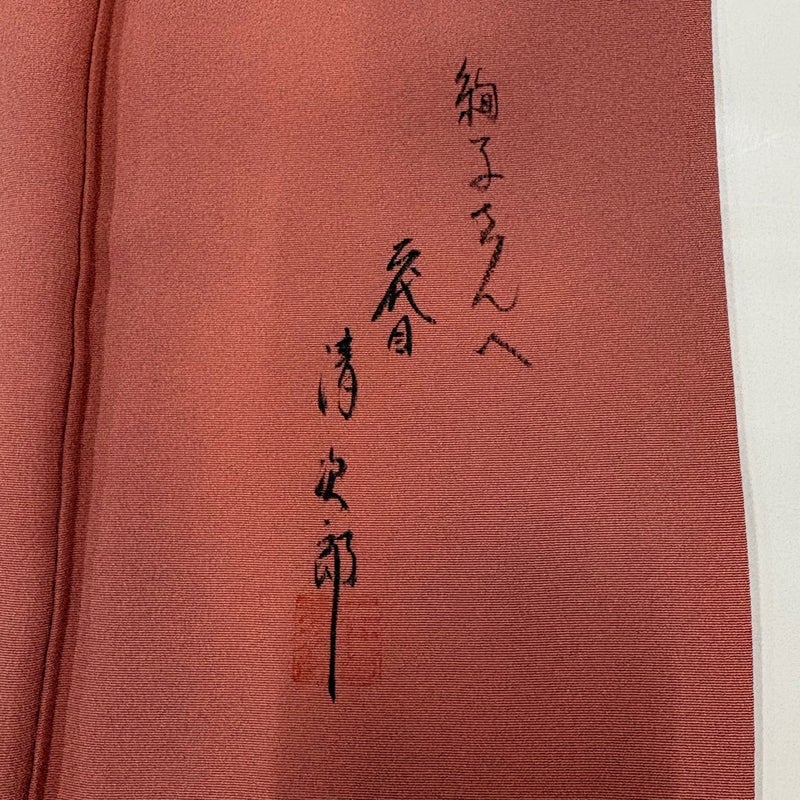 絢子さんへ
二代目
清次郎